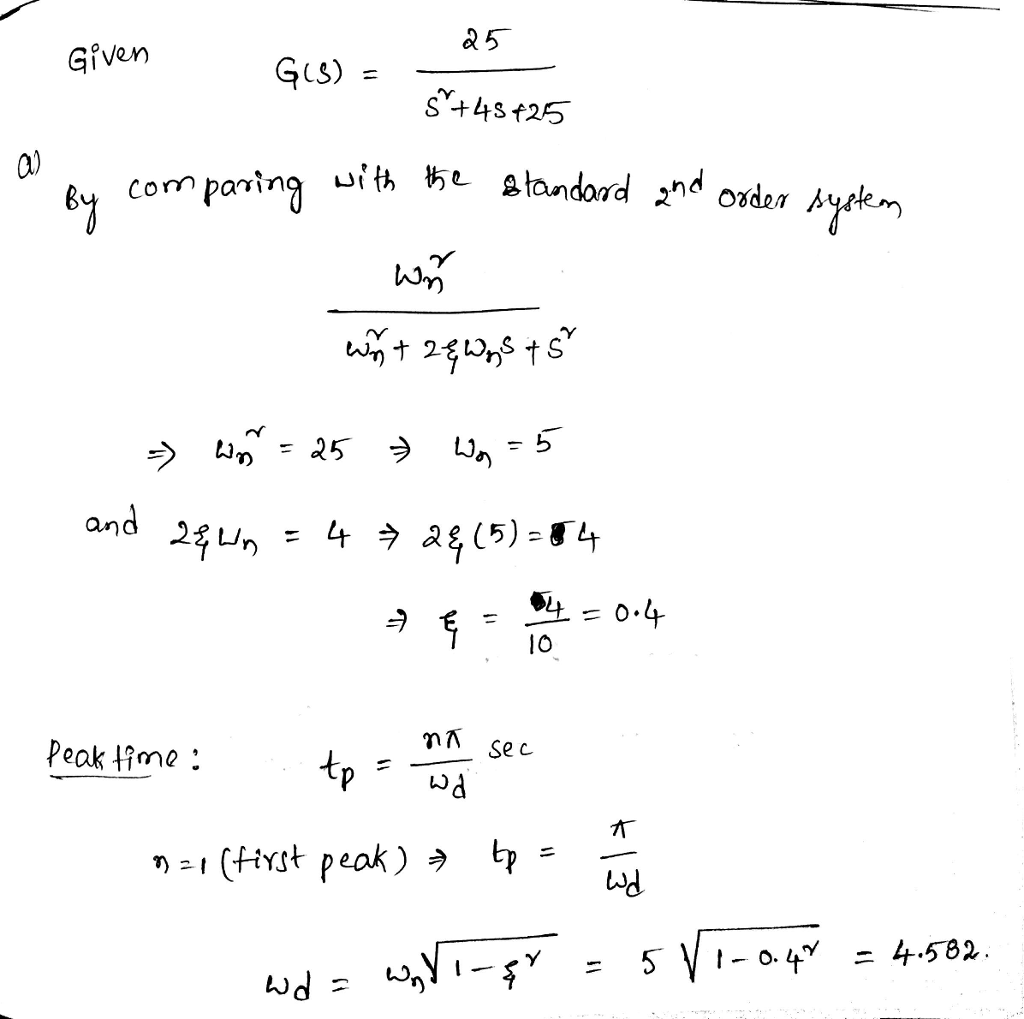 Given G(s) = 25 / (s² + 4s + 25)
a)
By comparing with the standard 2nd order system
ωn² / (ωn² + 2ξωns + s²)
⇒ ωn² = 25 ⇒ ωn = 5
and 2ξωn = 4 ⇒ 2ξ(5) = 4
⇒ ξ = 4/10 = 0.4
Peak time : tp = nπ/ωd sec
n=1 (first peak) ⇒ tp = π/ωd
ωd = ωn√(1-ξ²) = 5√(1-0.4²) = 4.582.